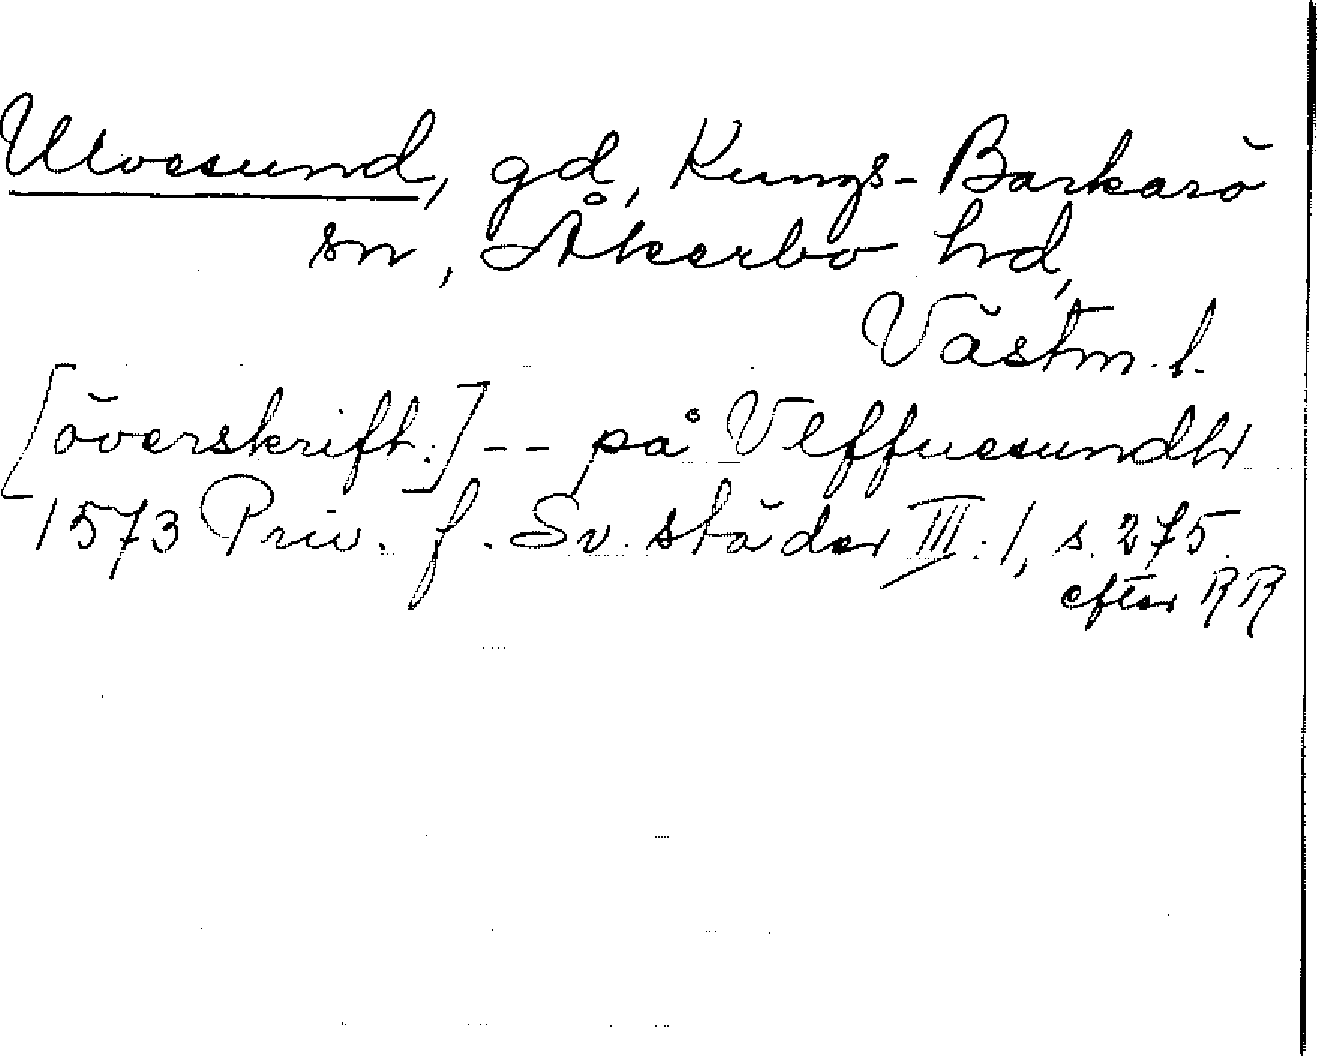 Ulvesund, gd, Kungs-Barkarö
sn, Åkerbo hd,
Västm. l.
[överskrift:] -- på Vlffuesundh
1573 Priv. f. Sv. städer III:1, s. 275.
efter RR